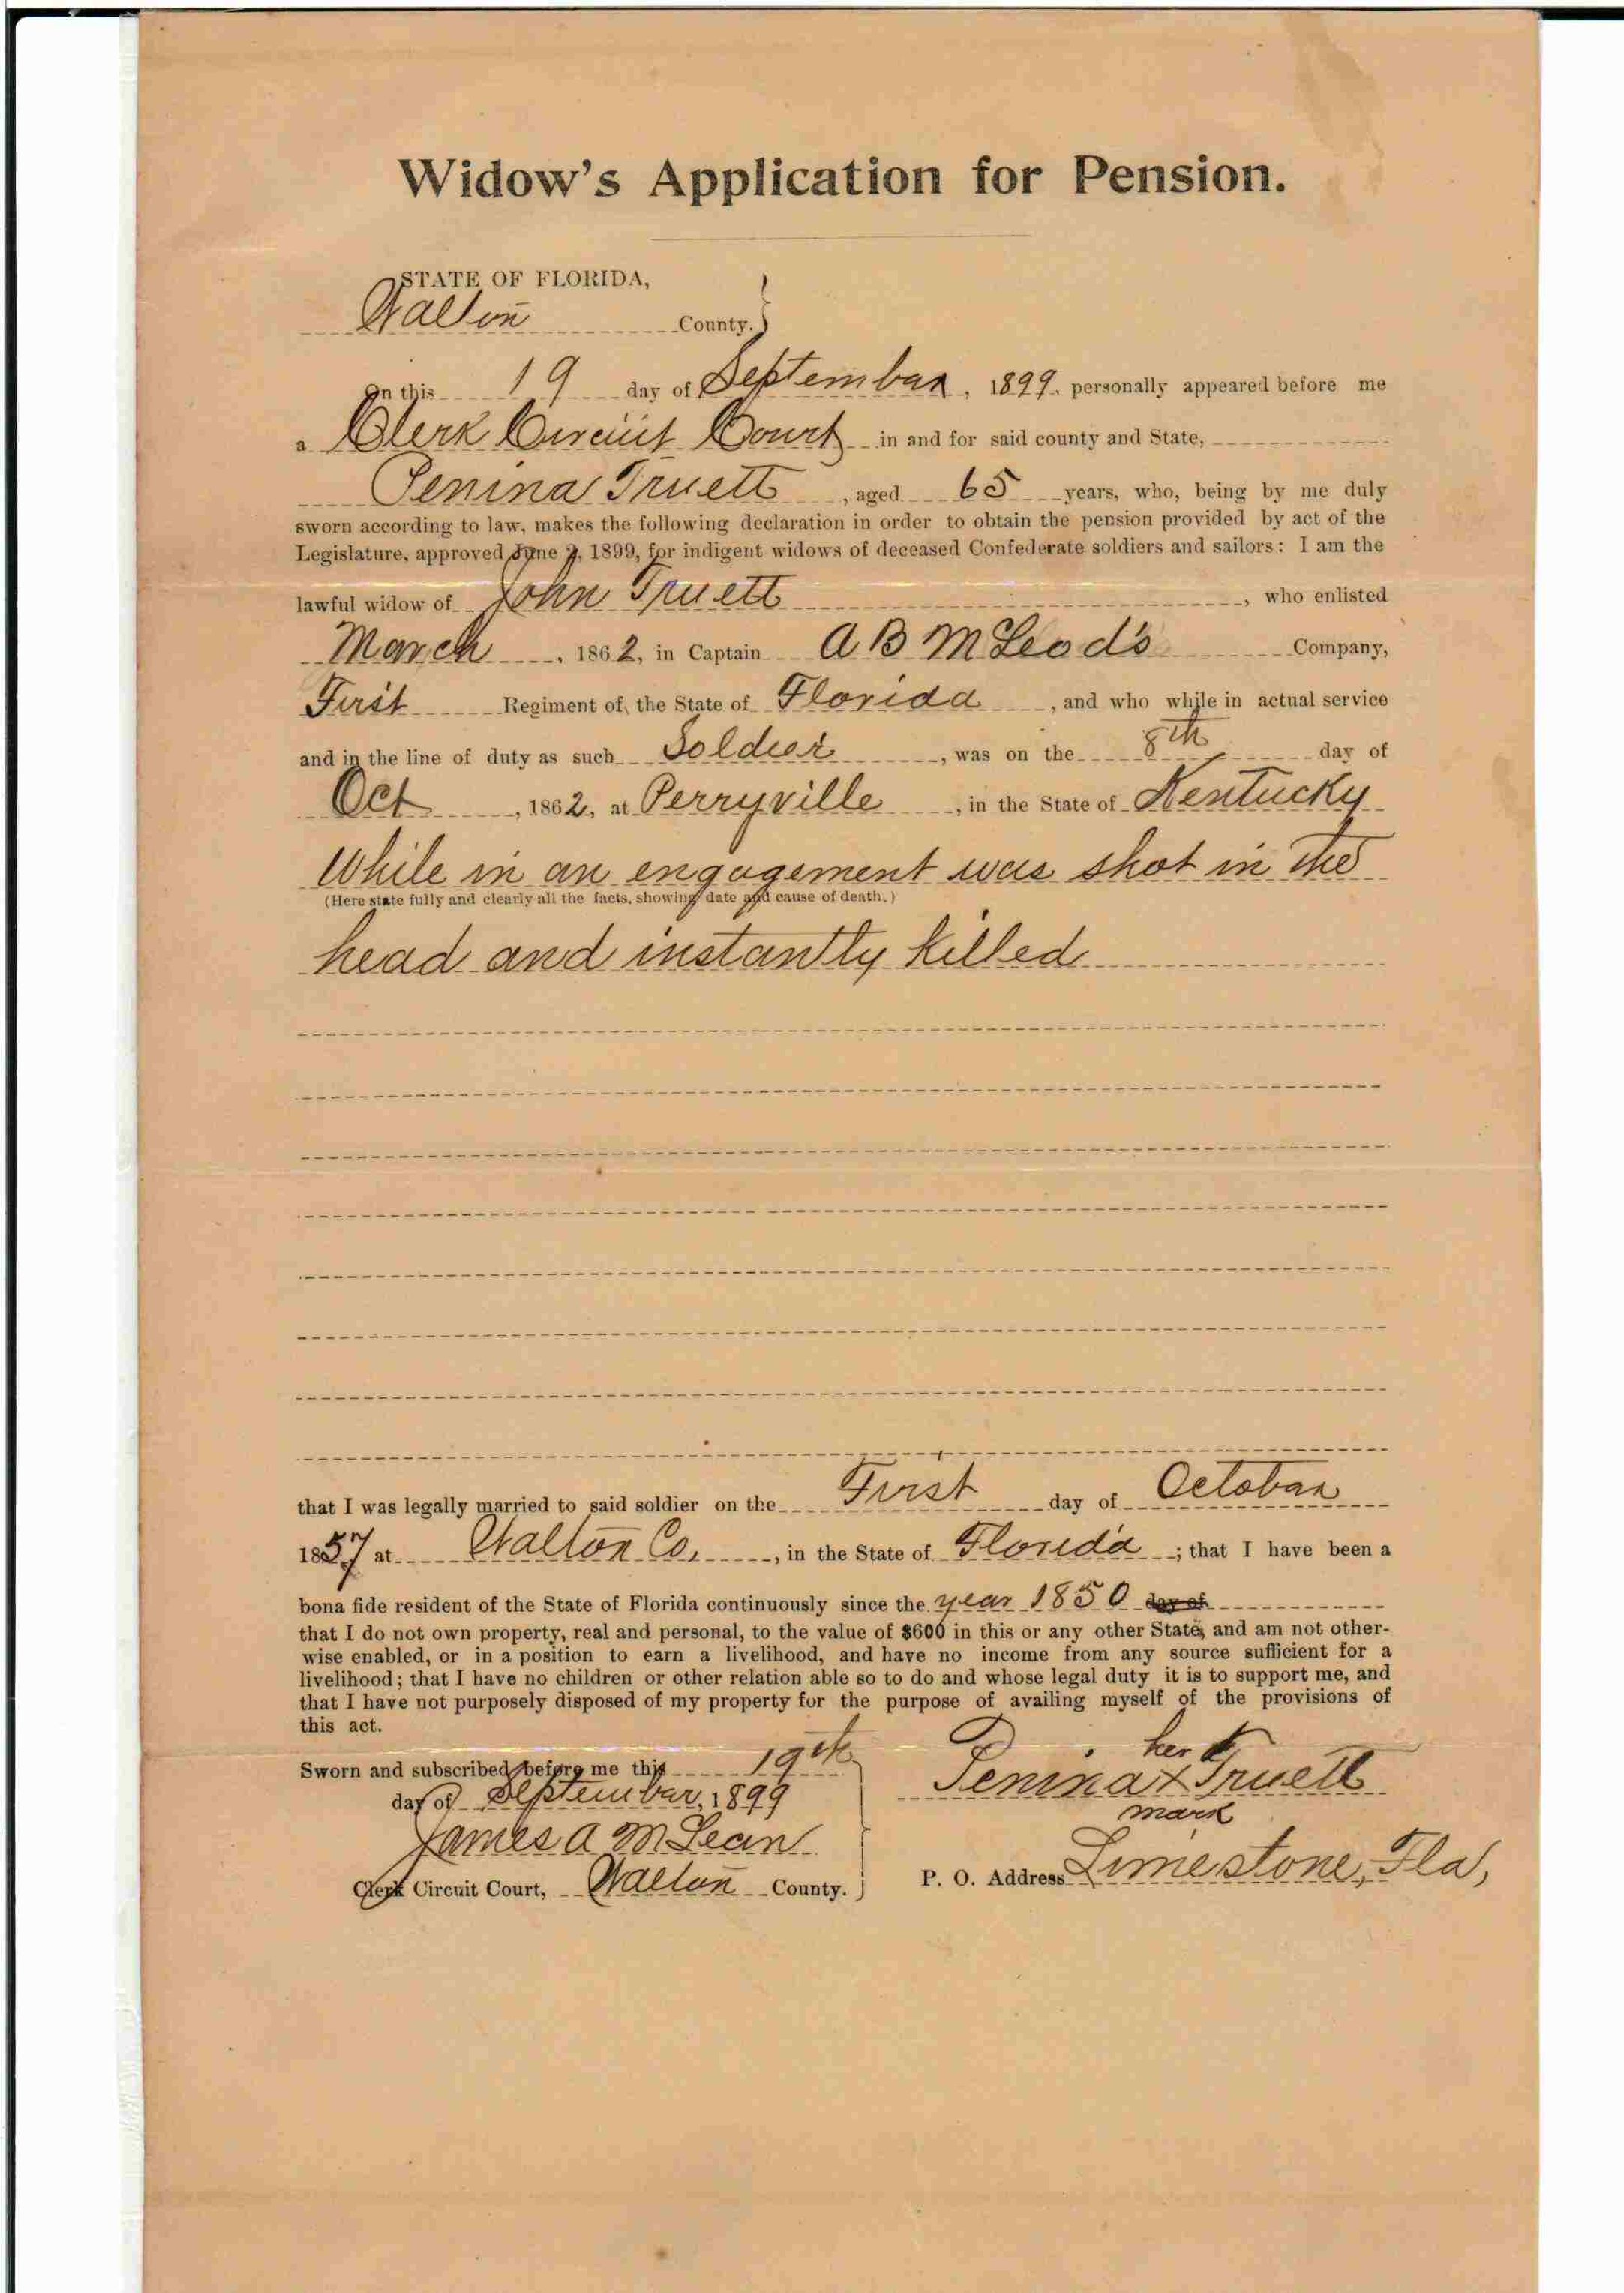 Widow's Application for Pension.
STATE OF FLORIDA,
Walton County.
On this 19 day of September, 1899, personally appeared before me
a Clerk Circuit Court in and for said county and State,
Penina Truett, aged 65 years, who, being by me duly
sworn according to law, makes the following declaration in order to obtain the pension provided by act of the
Legislature, approved June 2, 1899, for indigent widows of deceased Confederate soldiers and sailors: I am the
lawful widow of John Truett, who enlisted
March, 1862, in Captain A B McLeod's Company,
First Regiment of the State of Florida, and who while in actual service
and in the line of duty as such Soldier, was on the 8th day of
Oct, 1862, at Perryville, in the State of Kentucky
While in an engagement was shot in the
(Here state fully and clearly all the facts, showing date and cause of death.)
head and instantly killed
that I was legally married to said soldier on the First day of October
1857 at Walton Co., in the State of Florida; that I have been a
bona fide resident of the State of Florida continuously since the year 1850 day of
that I do not own property, real and personal, to the value of $600 in this or any other State, and am not other-
wise enabled, or in a position to earn a livelihood, and have no income from any source sufficient for a
livelihood; that I have no children or other relation able so to do and whose legal duty it is to support me, and
that I have not purposely disposed of my property for the purpose of availing myself of the provisions of
this act.
Sworn and subscribed before me this 19th
day of September, 1899
James A McLean
Clerk Circuit Court, Walton County.
her
Penina x Truett
mark
P. O. Address Limestone, Fla,